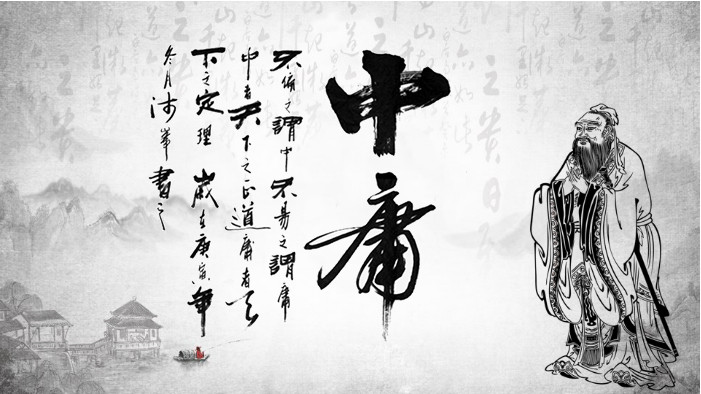 中庸
不偏之謂中不易之謂庸
中者天下之正道庸者天
下之定理 歲在庚寅年
冬月書之